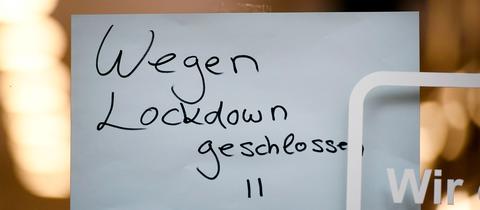 Wegen
Lockdown
geschlossen
!!
Wir